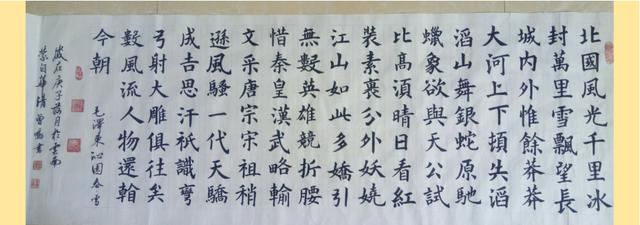 北國風光千里冰
封萬里雪飄望長
城内外惟餘莽莽
大河上下頓失滔
滔山舞銀蛇原馳
蠟象欲與天公試
比高須晴日看紅
裝素裹分外妖嬈
江山如此多嬌引
無數英雄競折腰
惜秦皇漢武略輸
文采唐宗宋祖稍
遜風騷一代天驕
成吉思汗祇識彎
弓射大雕俱往矣
數風流人物還翰
今朝
毛澤東沁園春雪
歲在庚子月於雲南
蒙自書